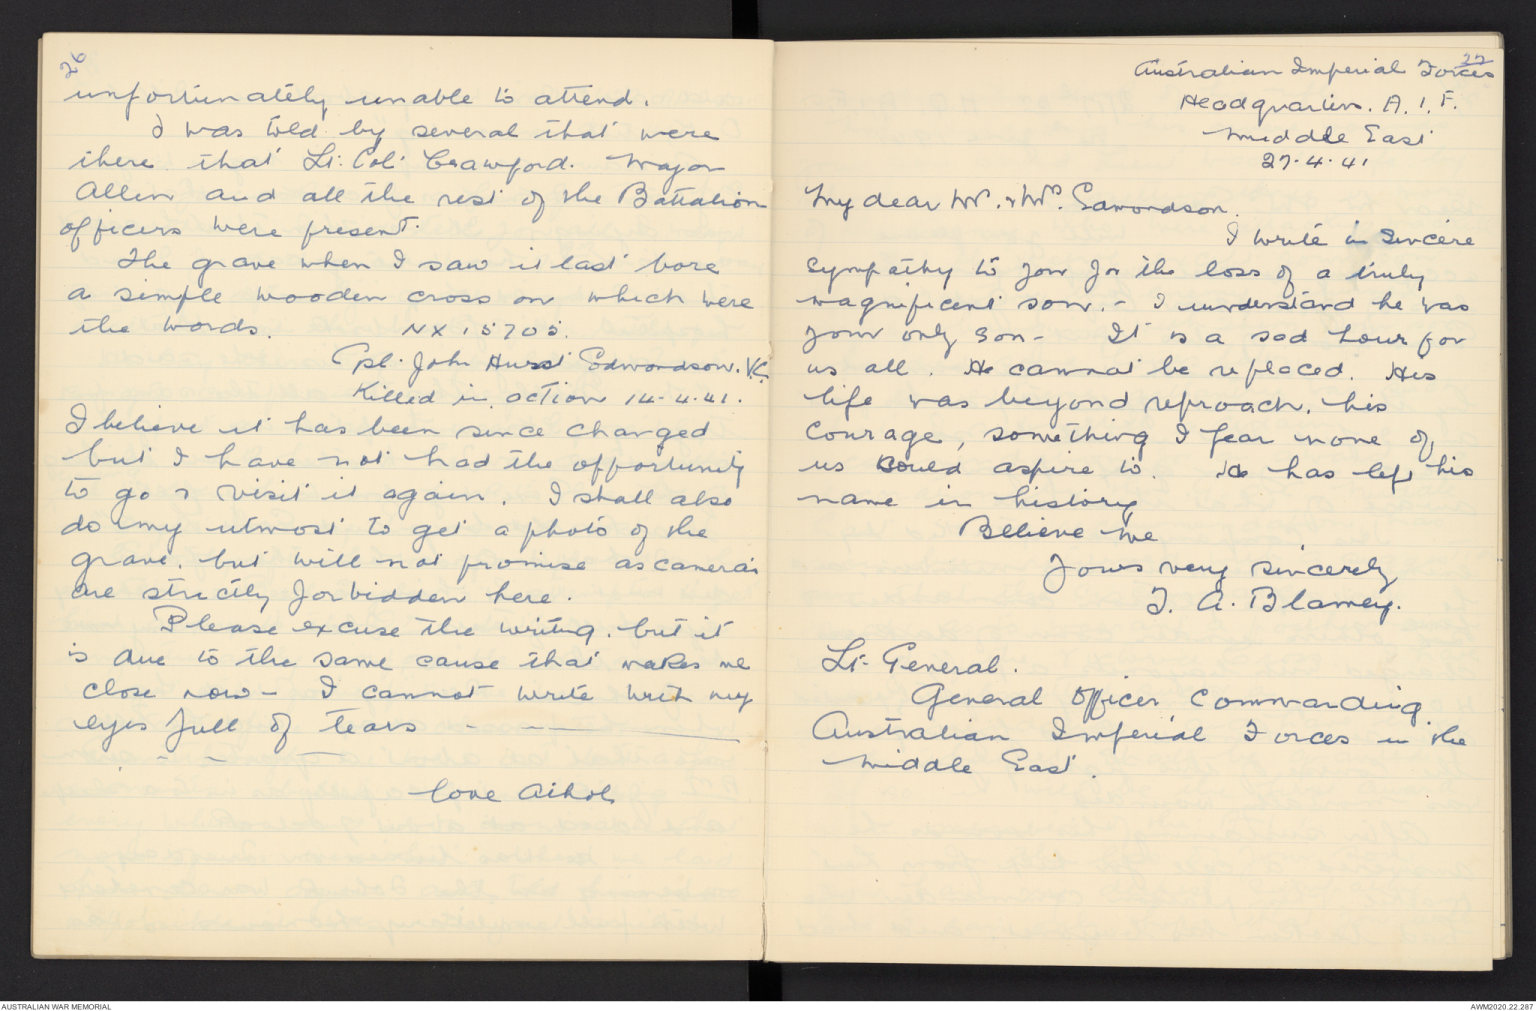 26
unfortunately unable to attend.
I was told by several that were
there that Lt. Col. Crawford. Major
Allen and all the rest of the Battalion
officers were present.
The grave when I saw it last bore
a simple wooden cross on which were
the words. NX 15705.
Cpl. John Hurst Edmondson. V.C.
Killed in action 14.4.41.
I believe it has been since changed
but I have not had the opportunity
to go & visit it again. I shall also
do my utmost to get a photo of the
grave. but will not promise as camera's
are strictly forbidden here.
Please excuse the writing. but it
is due to the same cause that makes me
close now - I cannot write with my
eyes full of tears - - -
- -
love
27
Australian Imperial Forces
Headquarters. A.I.F.
Middle East
27.4.41
My dear Mr. & Mrs. Edmondson.
I write in sincere
sympathy to you for the loss of a truly
magnificent son. - I understand he was
your only son - It is a sad hour for
us all. He cannot be replaced. His
life was beyond reproach. his
courage, something I fear none of
us could aspire to. He has left his
name in history
Believe me
Yours very sincerely
T. A. Blamey.
Lt- General.
General Officer Commanding.
Australian Imperial Forces in the
Middle East.
AUSTRALIAN WAR MEMORIAL
AWM2020.22.287